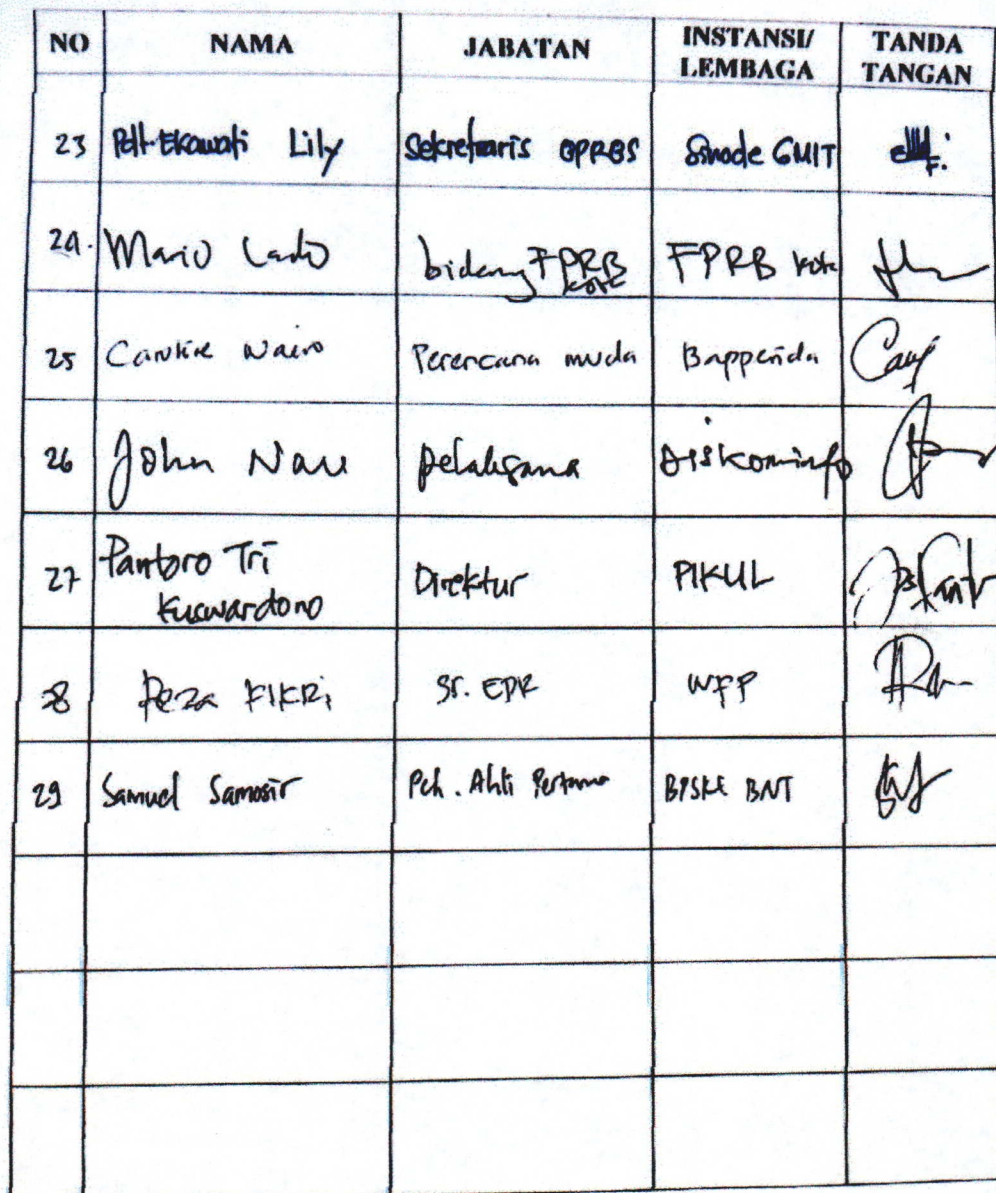 NO NAMA JABATAN INSTANSI/ LEMBAGA TANDA TANGAN
23 Pdt. Ekawati Lily Sekretaris Sinode GMIT
24. Mario Lado bidang FPRB kota FPRB kota
25 Perencana muda Bapperida
26 John pelaksana Diskominfo
27 Pantoro Tri Kuswardono Direktur PIKUL
28 Reza FIKRi EPR WFP
29 Samuel Samosir Peh. Ahli Pertama